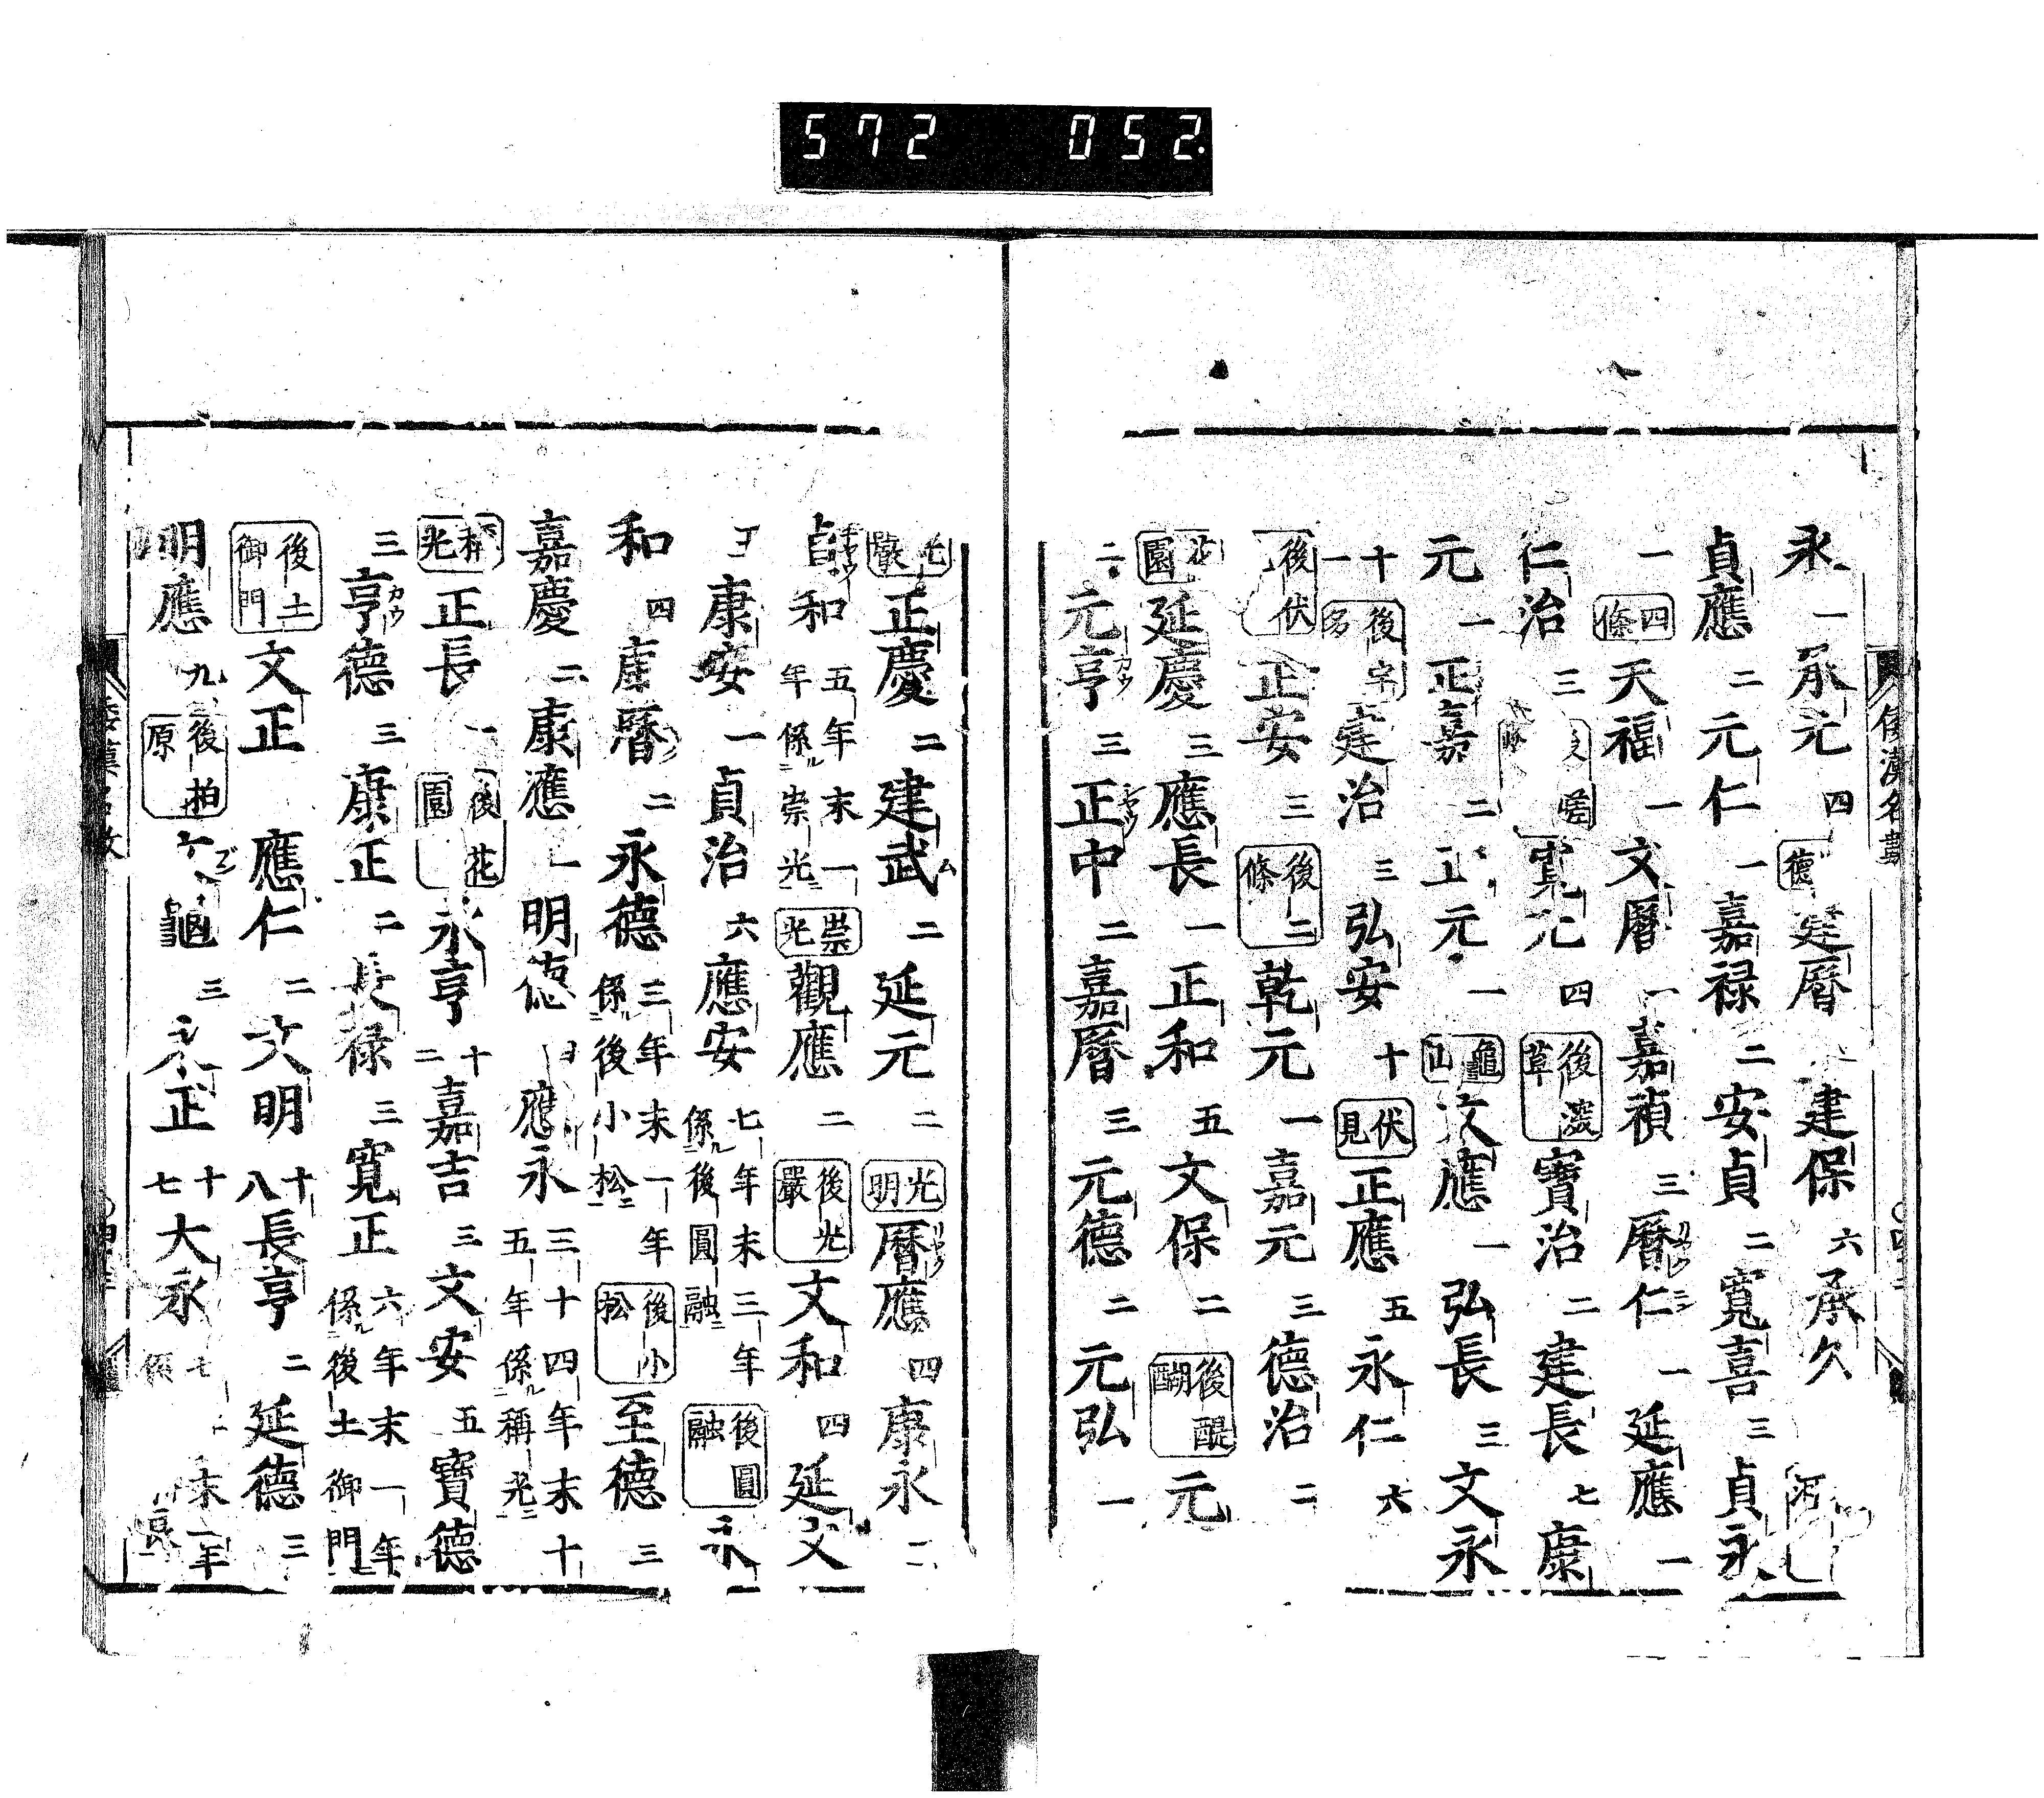 572 052.
永 一 承元 四 德 建曆 建保 六 承久
貞應 二 元仁 一 嘉祿 二 安貞 二 寬喜 三 貞永
一 四條 天福 一 文曆 一 嘉禎 三 曆仁 一 延應 一
仁治 三 嵯 寬元 四 後深草 寶治 二 建長 七 康
元 一 正嘉 二 正元 一 龜山 文應 一 弘長 三 文永
十一 後宇多 建治 三 弘安 十 伏見 正應 五 永仁 六
後伏 正安 三 後二條 乾元 一 嘉元 三 德治 二
花園 延慶 三 應長 一 正和 五 文保 二 後醍醐 元
二 元亨 三 正中 二 嘉曆 三 元德 二 元弘 一
光嚴 正慶 二 建武 二 延元 二 光明 曆應 四 康永 二
貞和 五年末一年係ル崇光ニ 崇光 觀應 二 後光嚴 文和 四 延文
五 康安 一 貞治 六 應安 七年末三年係ル後圓融ニ 後圓融 永
和 四 康曆 二 永德 三年末一年係ル後小松ニ 後小松 至德 三
嘉慶 二 康應 一 明德 應永 三十四年末十五年係ル稱光ニ
稱光 正長 一 後花園 永亨 十二 嘉吉 三 文安 五 寶德
三 亨德 三 康正 二 長祿 三 寬正 六年末一年係ル後土御門ニ
後土御門 文正 應仁 二 文明 十八 長亨 二 延德 三
明應 九 後拍原 文龜 三 永正 十七 大永 七 末一年係